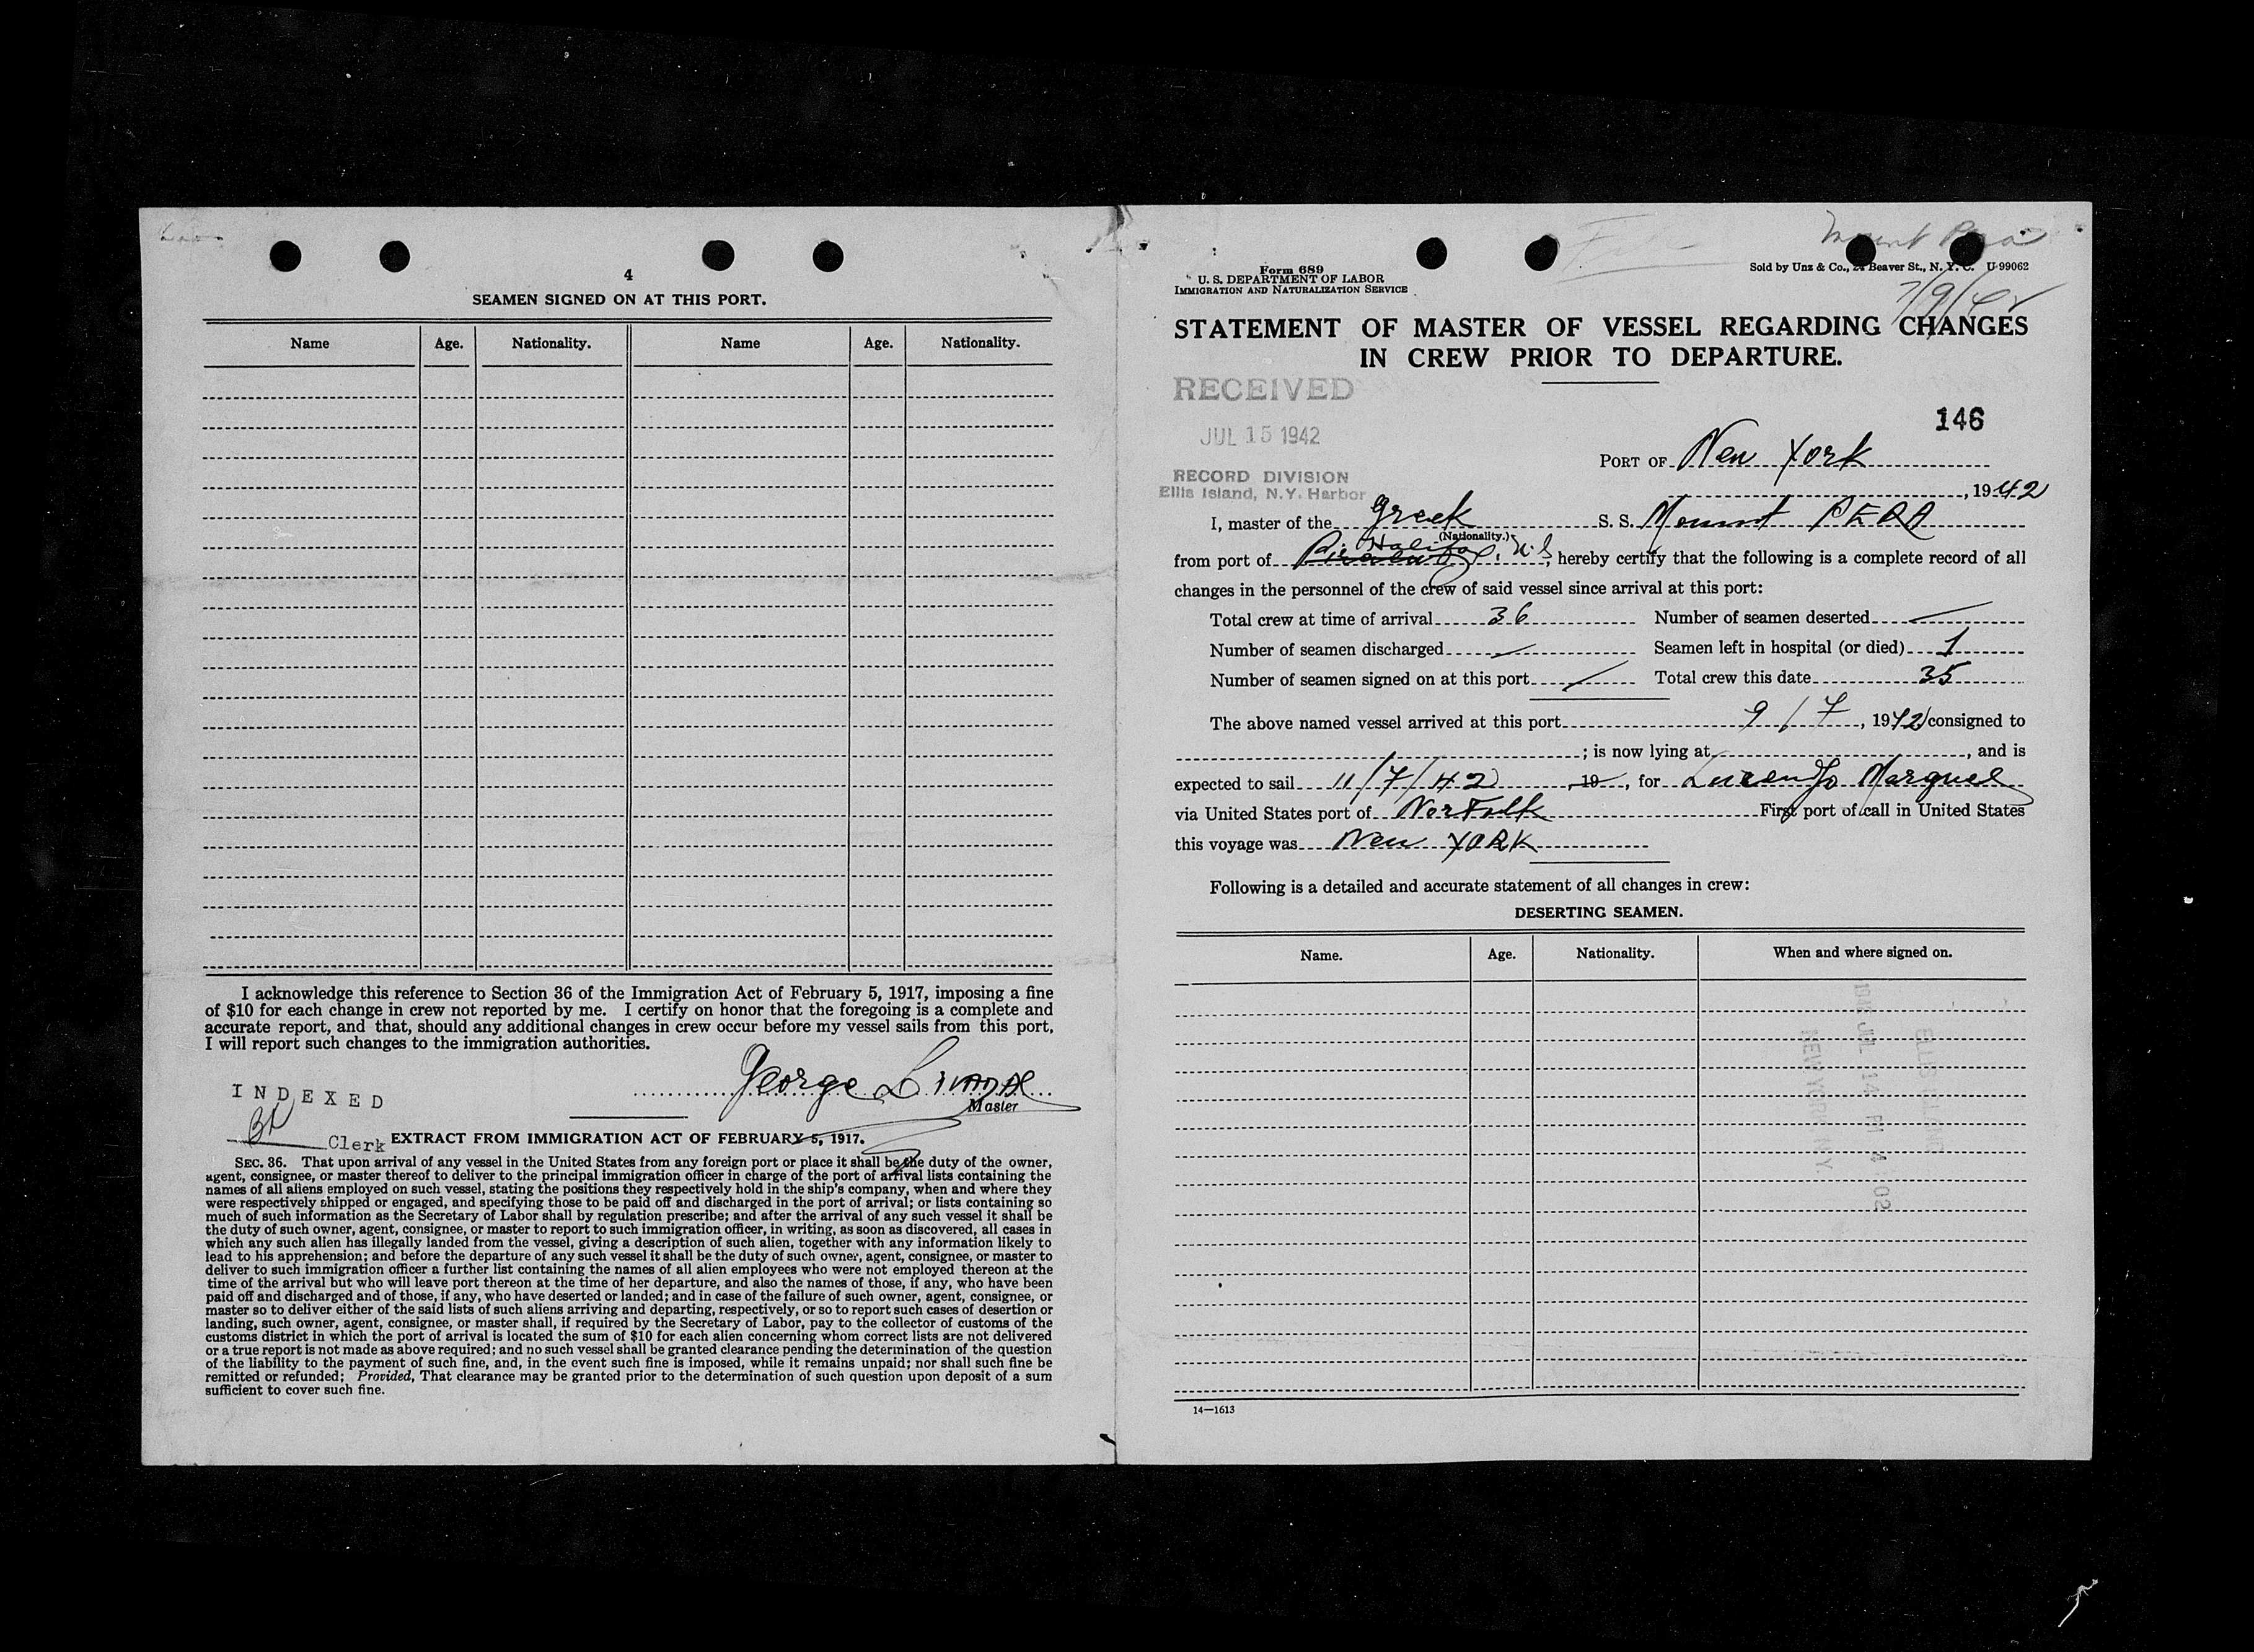 4
SEAMEN SIGNED ON AT THIS PORT.
Name Age. Nationality. Name Age. Nationality.
I acknowledge this reference to Section 36 of the Immigration Act of February 5, 1917, imposing a fine
of $10 for each change in crew not reported by me. I certify on honor that the foregoing is a complete and
accurate report, and that, should any additional changes in crew occur before my vessel sails from this port,
I will report such changes to the immigration authorities.
George
Master
INDEXED
Clerk
EXTRACT FROM IMMIGRATION ACT OF FEBRUARY 5, 1917.
SEC. 36. That upon arrival of any vessel in the United States from any foreign port or place it shall be the duty of the owner,
agent, consignee, or master thereof to deliver to the principal immigration officer in charge of the port of arrival lists containing the
names of all aliens employed on such vessel, stating the positions they respectively hold in the ship's company, when and where they
were respectively shipped or engaged, and specifying those to be paid off and discharged in the port of arrival; or lists containing so
much of such information as the Secretary of Labor shall by regulation prescribe; and after the arrival of any such vessel it shall be
the duty of such owner, agent, consignee, or master to report to such immigration officer, in writing, as soon as discovered, all cases in
which any such alien has illegally landed from the vessel, giving a description of such alien, together with any information likely to
lead to his apprehension; and before the departure of any such vessel it shall be the duty of such owner, agent, consignee, or master to
deliver to such immigration officer a further list containing the names of all alien employees who were not employed thereon at the
time of the arrival but who will leave port thereon at the time of her departure, and also the names of those, if any, who have been
paid off and discharged and of those, if any, who have deserted or landed; and in case of the failure of such owner, agent, consignee, or
master so to deliver either of the said lists of such aliens arriving and departing, respectively, or so to report such cases of desertion or
landing, such owner, agent, consignee, or master shall, if required by the Secretary of Labor, pay to the collector of customs of the
customs district in which the port of arrival is located the sum of $10 for each alien concerning whom correct lists are not delivered
or a true report is not made as above required; and no such vessel shall be granted clearance pending the determination of the question
of the liability to the payment of such fine, and, in the event such fine is imposed, while it remains unpaid; nor shall such fine be
remitted or refunded; Provided, That clearance may be granted prior to the determination of such question upon deposit of a sum
sufficient to cover such fine.
Mount Pera
Form 689
U. S. DEPARTMENT OF LABOR
IMMIGRATION AND NATURALIZATION SERVICE
Sold by Unz & Co., 24 Beaver St., N. Y. C. U-99062
7/9/42
STATEMENT OF MASTER OF VESSEL REGARDING CHANGES
IN CREW PRIOR TO DEPARTURE.
RECEIVED
JUL 15 1942
RECORD DIVISION
Ellis Island, N.Y. Harbor
146
PORT OF New York
, 1942
I, master of the Greek S. S. Mount PERA
(Nationality.)
from port of Halifax, N.S, hereby certify that the following is a complete record of all
changes in the personnel of the crew of said vessel since arrival at this port:
Total crew at time of arrival 36 Number of seamen deserted
Number of seamen discharged Seamen left in hospital (or died) 1
Number of seamen signed on at this port Total crew this date 35
The above named vessel arrived at this port 9/7, 1942 consigned to
; is now lying at , and is
expected to sail 11/7/42, 19 , for Lurenzo Marques
via United States port of Norfolk First port of call in United States
this voyage was New YORK
Following is a detailed and accurate statement of all changes in crew:
DESERTING SEAMEN.
Name. Age. Nationality. When and where signed on.
ELLIS ISLAND
1942 JUL 14 PM 4 02
NEW YORK, N.Y.
14—1613